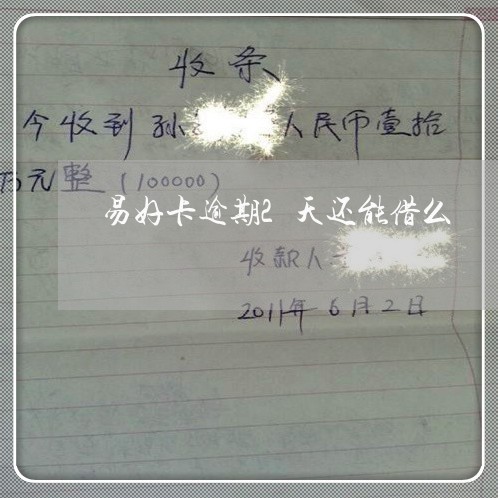 收条
今收到孙人民币壹拾
万元整（100000）
易好卡逾期2天还能借么
收款人
2011年6月2日